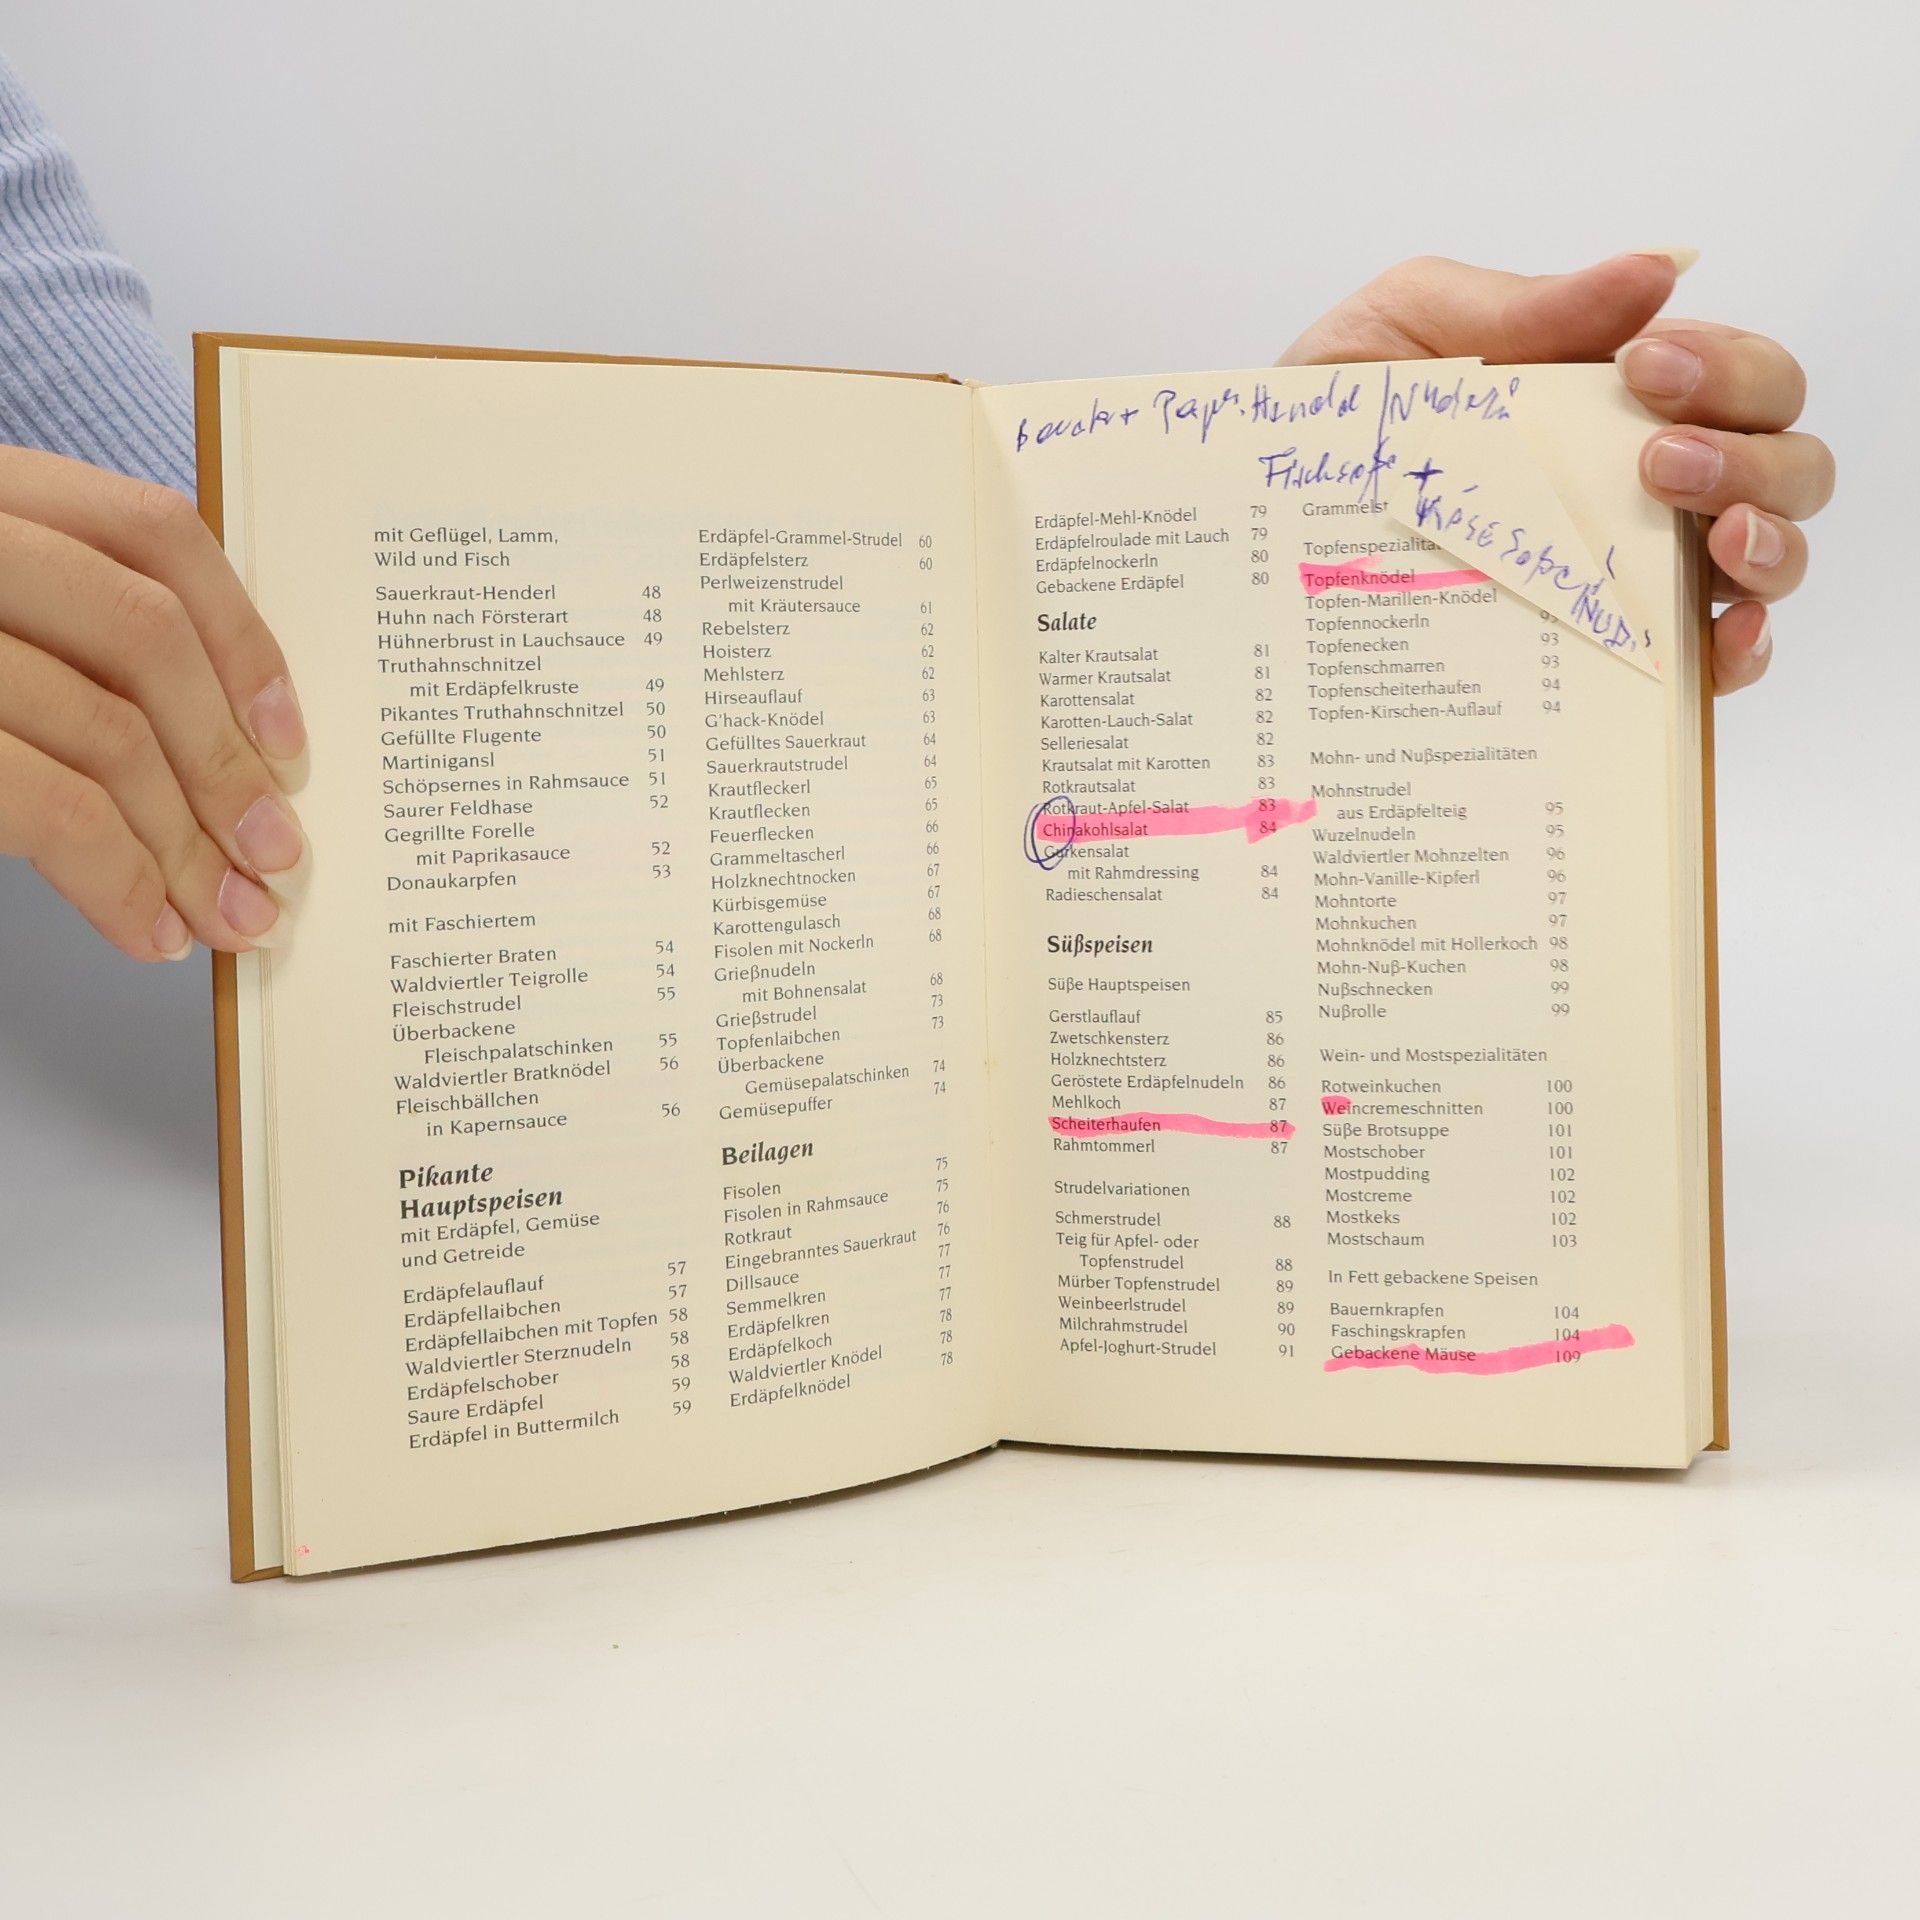 mit Geflügel, Lamm,
Wild und Fisch
Sauerkraut-Henderl 48
Huhn nach Försterart 48
Hühnerbrust in Lauchsauce 49
Truthahnschnitzel
mit Erdäpfelkruste 49
Pikantes Truthahnschnitzel 50
Gefüllte Flugente 50
Martinigansl 51
Schöpsernes in Rahmsauce 51
Saurer Feldhase 52
Gegrillte Forelle
mit Paprikasauce 52
Donaukarpfen 53
mit Faschiertem
Faschierter Braten 54
Waldviertler Teigrolle 54
Fleischstrudel 55
Überbackene
Fleischpalatschinken 55
Waldviertler Bratknödel 56
Fleischbällchen
in Kapernsauce 56
Pikante
Hauptspeisen
mit Erdäpfel, Gemüse
und Getreide
Erdäpfelauflauf 57
Erdäpfellaibchen 57
Erdäpfellaibchen mit Topfen 58
Waldviertler Sterznudeln 58
Erdäpfelschober 58
Saure Erdäpfel 59
Erdäpfel in Buttermilch 59
Erdäpfel-Grammel-Strudel 60
Erdäpfelsterz 60
Perlweizenstrudel
mit Kräutersauce 61
Rebelsterz 62
Hoisterz 62
Mehlsterz 62
Hirseauflauf 63
G'hack-Knödel 63
Gefülltes Sauerkraut 64
Sauerkrautstrudel 64
Krautfleckerl 65
Krautflecken 65
Feuerflecken 66
Grammeltascherl 66
Holzknechtnocken 67
Kürbisgemüse 67
Karottengulasch 68
Fisolen mit Nockerln 68
Grießnudeln
mit Bohnensalat 68
Grießstrudel 73
Topfenlaibchen 73
Überbackene
Gemüsepalatschinken 74
Gemüsepuffer 74
Beilagen
Fisolen 75
Fisolen in Rahmsauce 75
Rotkraut 76
Eingebranntes Sauerkraut 76
Dillsauce 77
Semmelkren 77
Erdäpfelkren 77
Erdäpfelkoch 78
Waldviertler Knödel 78
Erdäpfelknödel 78
+ Henderl / Nudeln
+
Käse Soße / NUD.
Erdäpfel-Mehl-Knödel 79
Erdäpfelroulade mit Lauch 79
Erdäpfelnockerln 80
Gebackene Erdäpfel 80
Salate
Kalter Krautsalat 81
Warmer Krautsalat 81
Karottensalat 82
Karotten-Lauch-Salat 82
Selleriesalat 82
Krautsalat mit Karotten 83
Rotkrautsalat 83
Rotkraut-Apfel-Salat 83
Chinakohlsalat 84
Gurkensalat
mit Rahmdressing 84
Radieschensalat 84
Süßspeisen
Süße Hauptspeisen
Gerstlauflauf 85
Zwetschkensterz 86
Holzknechtsterz 86
Geröstete Erdäpfelnudeln 86
Mehlkoch 87
Scheiterhaufen 87
Rahmtommerl 87
Strudelvariationen
Schmerstrudel 88
Teig für Apfel- oder
Topfenstrudel 88
Mürber Topfenstrudel 89
Weinbeerlstrudel 89
Milchrahmstrudel 90
Apfel-Joghurt-Strudel 91
Grammelst
Topfenspezialitä
Topfenknödel
Topfen-Marillen-Knödel
Topfennockerln 93
Topfenecken 93
Topfenschmarren 93
Topfenscheiterhaufen 94
Topfen-Kirschen-Auflauf 94
Mohn- und Nußspezialitäten
Mohnstrudel
aus Erdäpfelteig 95
Wuzelnudeln 95
Waldviertler Mohnzelten 96
Mohn-Vanille-Kipferl 96
Mohntorte 97
Mohnkuchen 97
Mohnknödel mit Hollerkoch 98
Mohn-Nuß-Kuchen 98
Nußschnecken 99
Nußrolle 99
Wein- und Mostspezialitäten
Rotweinkuchen 100
Weincremeschnitten 100
Süße Brotsuppe 101
Mostschober 101
Mostpudding 102
Mostcreme 102
Mostkeks 102
Mostschaum 103
In Fett gebackene Speisen
Bauernkrapfen 104
Faschingskrapfen 104
Gebackene Mäuse 109